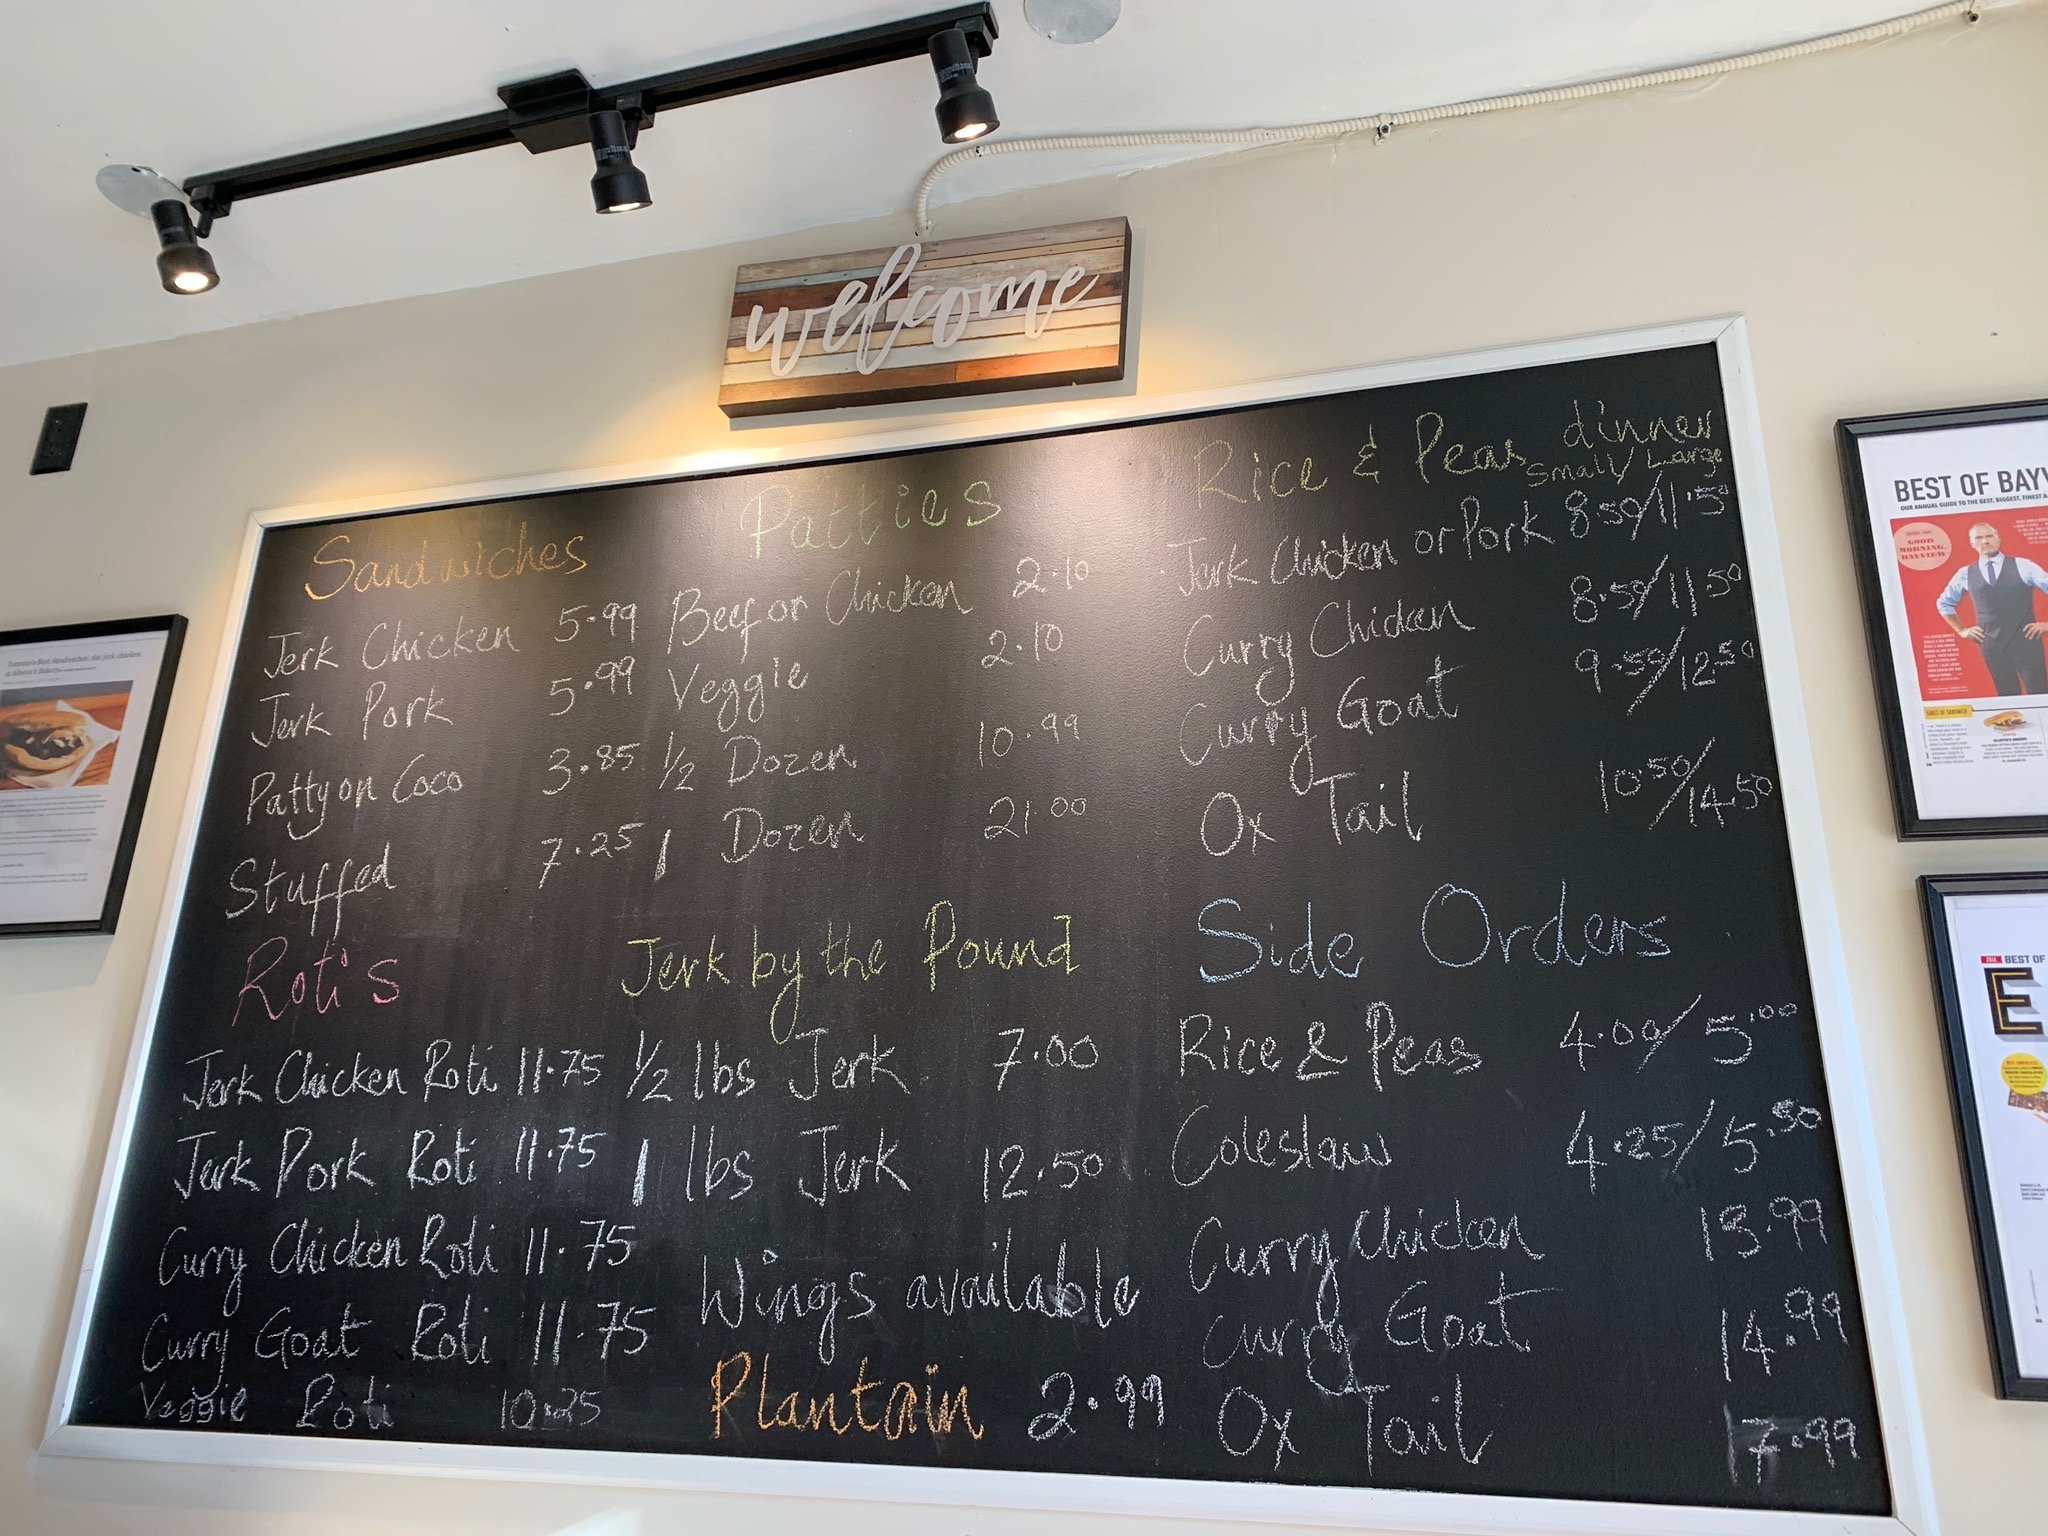 welcome
Sandwiches
Jerk Chicken 5.99
Jerk Pork 5.99
Patty on Coco 3.85
Stuffed 7.25
Patties
Beef or Chicken 2.10
Veggie 2.10
1/2 Dozen 10.99
1 Dozen 21.00
Rice & Peas dinner
Small/Large
Jerk Chicken or Pork 8.50/11.50
Curry Chicken 8.50/11.50
Curry Goat 9.50/12.50
Ox Tail 10.50/14.50
Roti's
Jerk Chicken Roti 11.75
Jerk Pork Roti 11.75
Curry Chicken Roti 11.75
Curry Goat Roti 11.75
Veggie Roti 10.25
Jerk by the Pound
1/2 lbs Jerk 7.00
1 lbs Jerk 12.50
Wings available
Plantain 2.99
Side Orders
Rice & Peas 4.00/5.00
Coleslaw 4.25/5.50
Curry Chicken 13.99
Curry Goat 14.99
Ox Tail 17.99
Toronto's Best Sandwiches: the jerk chicken
BEST OF BAYV
OUR ANNUAL GUIDE TO THE BEST, BIGGEST, FINEST &
GOOD
MORNING,
BAYVIEW
2016 BEST OF
E